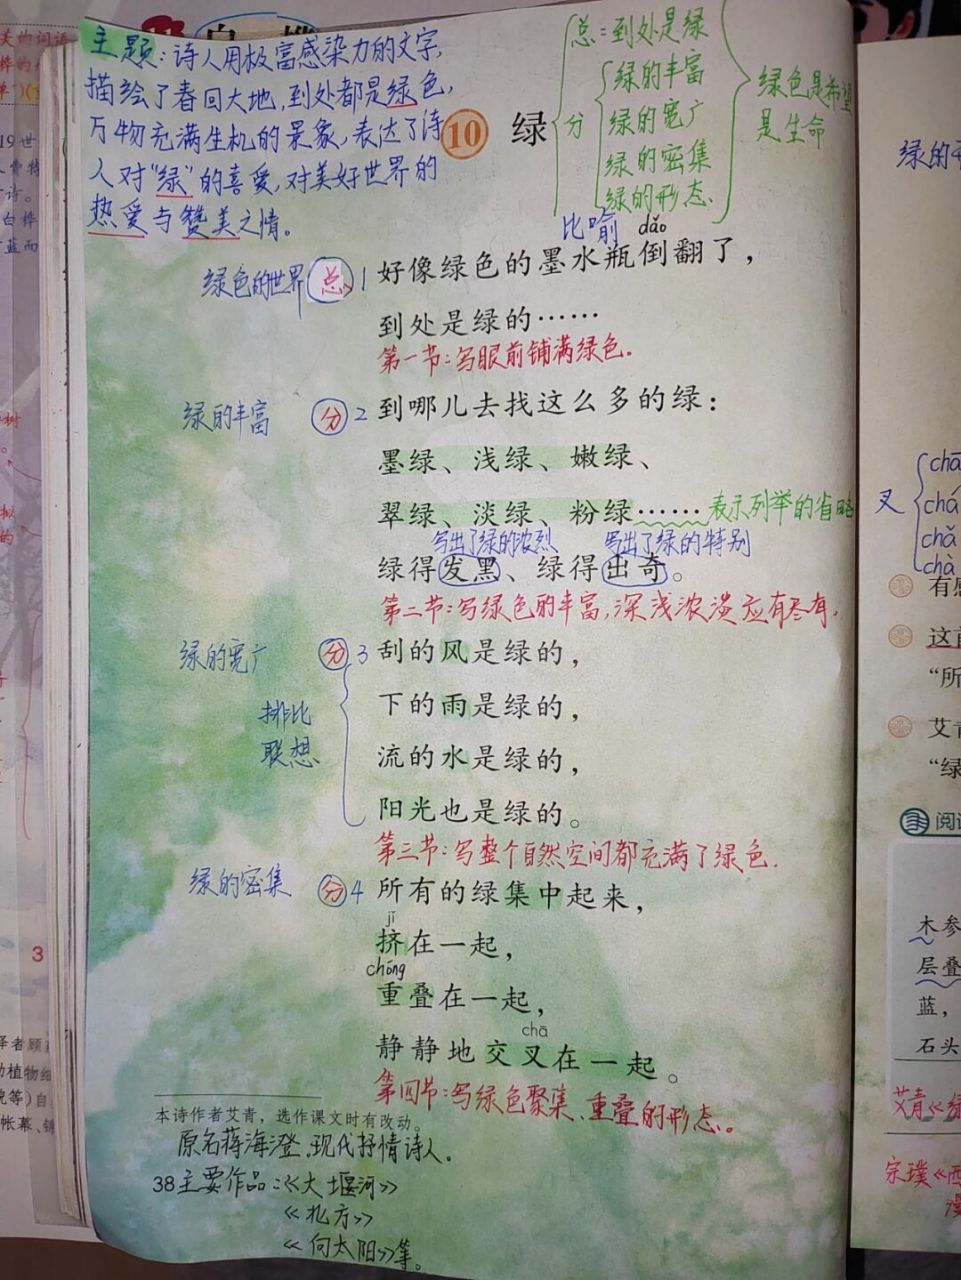 主题:诗人用极富感染力的文字,
描绘了春回大地,到处都是绿色,
万物充满生机的景象,表达了诗
人对“绿”的喜爱,对美好世界的
热爱与赞美之情。
10 绿
总:到处是绿
分
绿的丰富
绿的宽广
绿的密集
绿的形态
绿色是希望
是生命
比喻 dǎo
绿色的世界 总 1 好像绿色的墨水瓶倒翻了,
到处是绿的……
第一节:写眼前铺满绿色。
绿的丰富 分 2 到哪儿去找这么多的绿:
墨绿、浅绿、嫩绿、
翠绿、淡绿、粉绿…… 表示列举的省略
写出了绿的浓烈 写出了绿的特别
绿得发黑、绿得出奇。
第二节:写绿色的丰富,深浅浓淡应有尽有。
绿的宽广 分 3 刮的风是绿的,
下的雨是绿的,
排比
联想
流的水是绿的,
阳光也是绿的。
第三节:写整个自然空间都充满了绿色.
绿的密集 分 4 所有的绿集中起来,
jǐ
挤在一起,
chóng
重叠在一起,
chā
静静地交叉在一起。
第四节:写绿色聚集、重叠的形态。
本诗作者艾青,选作课文时有改动。
原名蒋海澄。现代抒情诗人。
38 主要作品:《大堰河》
《北方》
《向太阳》等。
叉
chá
chǎ
chà
有感
这首
“所
艾青
“绿
阅读
木参
层叠
蓝,
石头
艾青《绿
宗璞《西